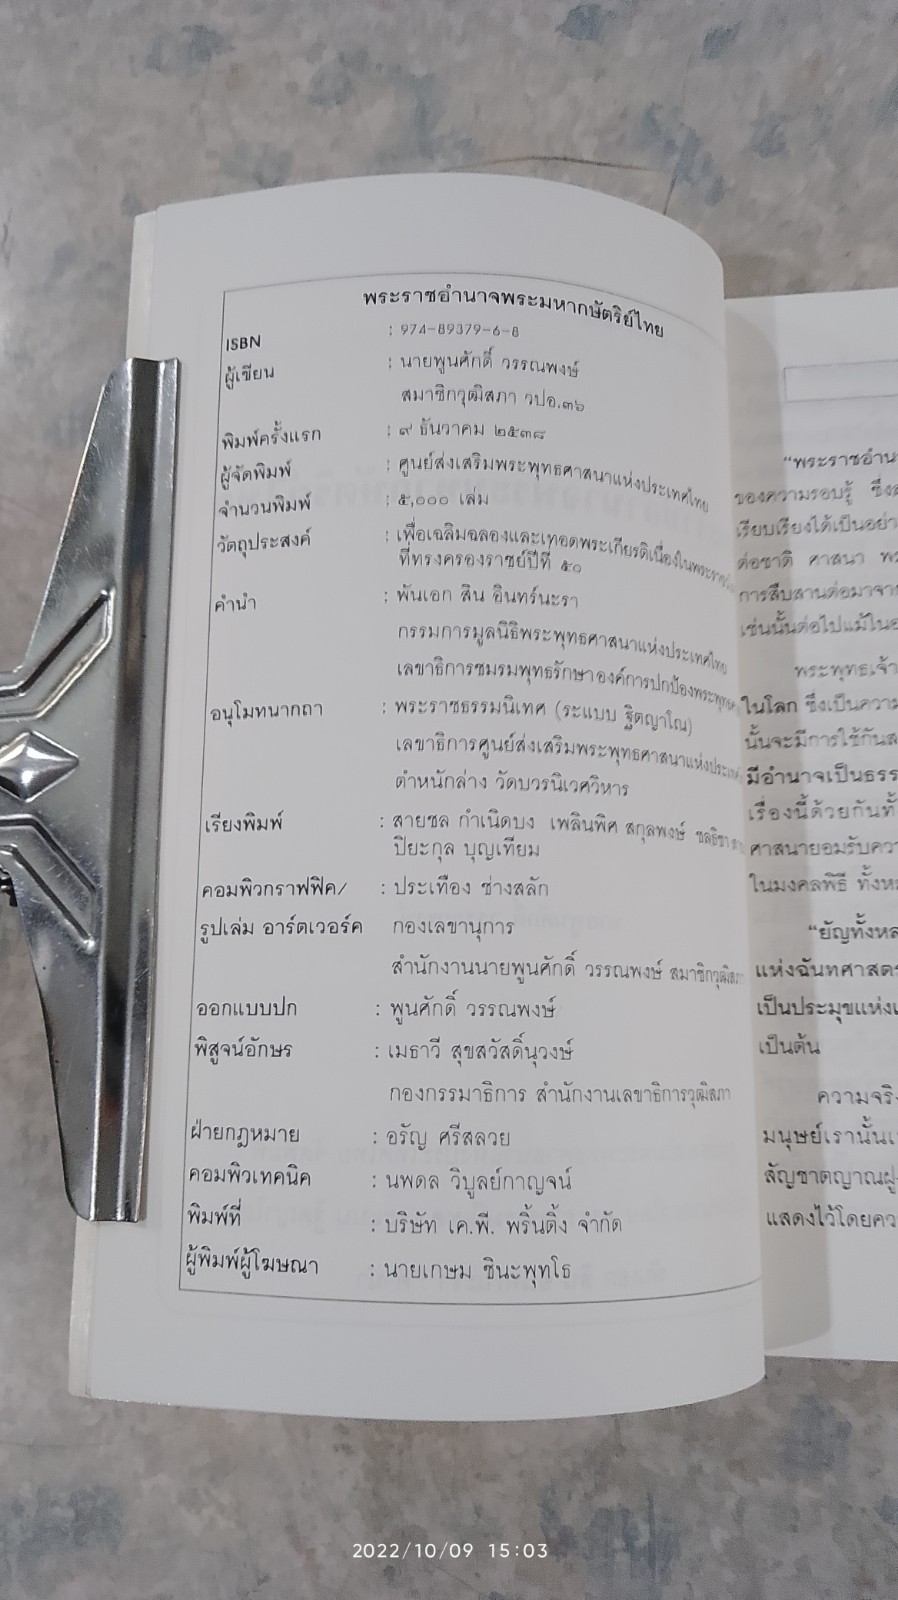 พระราชอำนาจพระมหากษัตริย์ไทย
ISBN : 974-89379-6-8
ผู้เขียน : นายพูนศักดิ์ วรรณพงษ์
สมาชิกวุฒิสภา วปอ.๓๖
พิมพ์ครั้งแรก : ๙ ธันวาคม ๒๕๓๘
ผู้จัดพิมพ์ : ศูนย์ส่งเสริมพระพุทธศาสนาแห่งประเทศไทย
จำนวนพิมพ์ : ๕,๐๐๐ เล่ม
วัตถุประสงค์ : เพื่อเฉลิมฉลองและเทอดพระเกียรติเนื่องใน
ที่ทรงครองราชย์ปีที่ ๕๐
คำนำ : พันเอก สิน อินทร์นะรา
กรรมการมูลนิธิพระพุทธศาสนาแห่งประเทศไทย
เลขาธิการชมรมพุทธรักษาองค์การปกป้อง
อนุโมทนากถา : พระราชธรรมนิเทศ (ระแบบ ฐิตญาโณ)
เลขาธิการศูนย์ส่งเสริมพระพุทธศาสนาแห่ง
ตำหนักล่าง วัดบวรนิเวศวิหาร
เรียงพิมพ์ : สายชล กำเนิดบง เพลินพิศ สกุลพงษ์
ปิยะกุล บุญเทียม
คอมพิวกราฟฟิค/ : ประเทือง ช่างสลัก
รูปเล่ม อาร์ตเวอร์ค กองเลขานุการ
สำนักงานนายพูนศักดิ์ วรรณพงษ์ สมาชิกวุฒิสภา
ออกแบบปก : พูนศักดิ์ วรรณพงษ์
พิสูจน์อักษร : เมธาวี สุขสวัสดิ์นุวงษ์
กองกรรมาธิการ สำนักงานเลขาธิการวุฒิสภา
ฝ่ายกฎหมาย : อรัญ ศรีสลวย
คอมพิวเทคนิค : นพดล วิบูลย์กาญจน์
พิมพ์ที่ : บริษัท เค.พี. พริ้นติ้ง จำกัด
ผู้พิมพ์ผู้โฆษณา : นายเกษม ชินะพุทโธ
"พระราชอำน
ของความรอบรู้
เรียบเรียงได้เป็นอย่า
ต่อชาติ ศาสนา
การสืบสานต่อมาจา
เช่นนั้นต่อไปแม้ใน
พระพุทธเจ้า
ในโลก ซึ่งเป็นความ
นั้นจะมีการใช้กัน
มีอำนาจเป็นธรร
เรื่องนี้ด้วยกันทั้
ศาสนายอมรับควา
ในมงคลพิธี ทั้งห
"ยัญทั้งหล
แห่งฉันทศาสตร
เป็นประมุขแห่ง
เป็นต้น
ความจริ
มนุษย์เรานั้น
สัญชาตญาณฝู
แสดงไว้โดยคว
2022/10/09 15:03